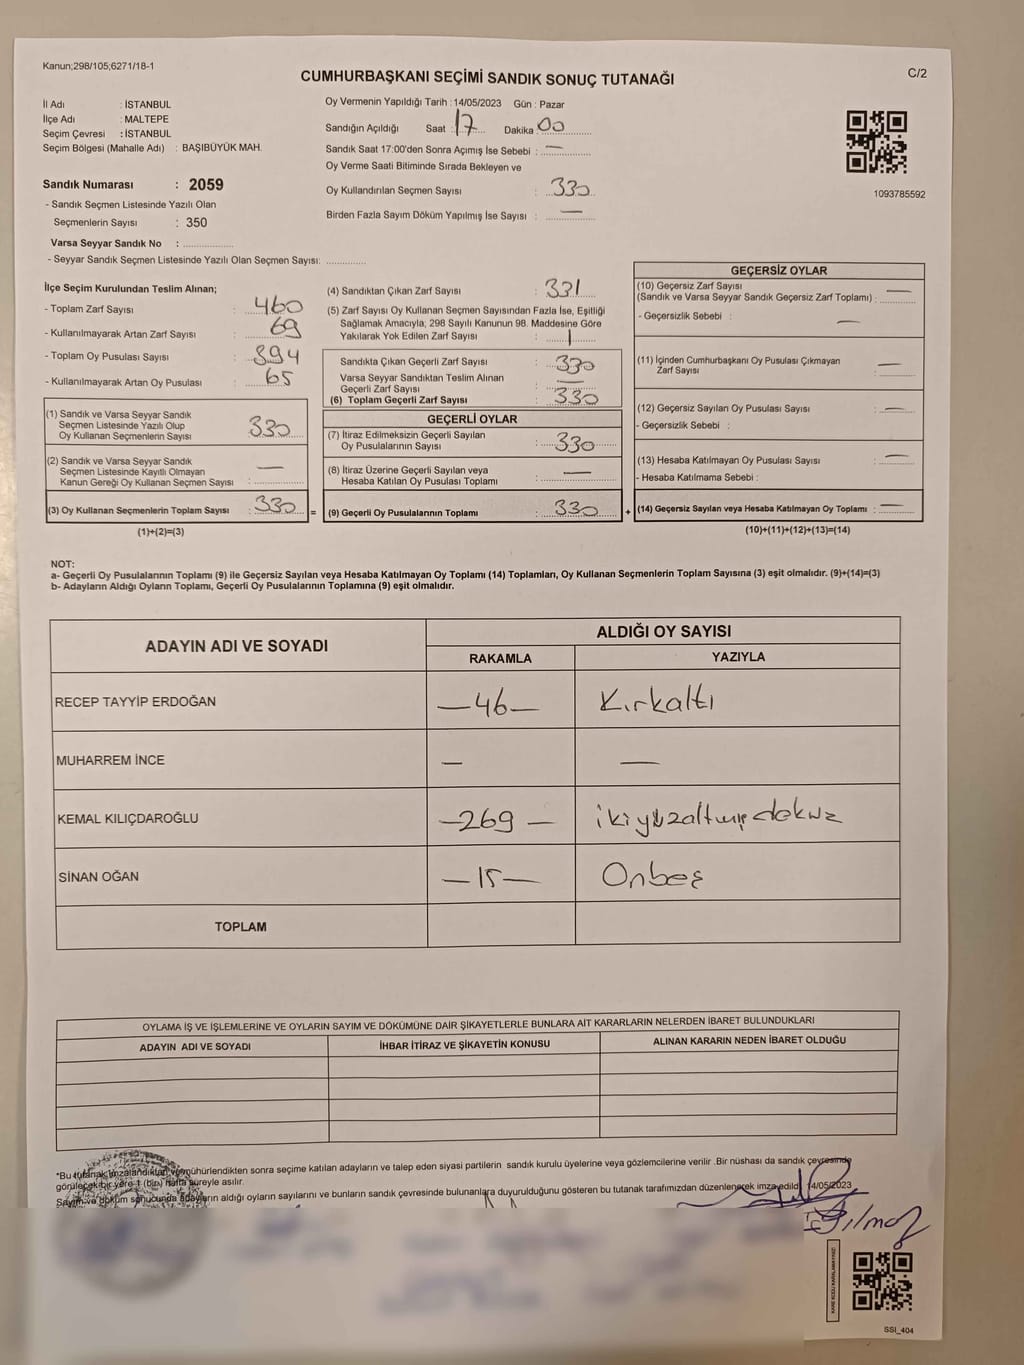 Kanun;298/105;6271/18-1
C/2
CUMHURBAŞKANI SEÇİMİ SANDIK SONUÇ TUTANAĞI
İl Adı : İSTANBUL
İlçe Adı : MALTEPE
Seçim Çevresi : İSTANBUL
Seçim Bölgesi (Mahalle Adı) : BAŞIBÜYÜK MAH.
Sandık Numarası : 2059
- Sandık Seçmen Listesinde Yazılı Olan
Seçmenlerin Sayısı : 350
Varsa Seyyar Sandık No : ..............
- Seyyar Sandık Seçmen Listesinde Yazılı Olan Seçmen Sayısı: ..............
Oy Vermenin Yapıldığı Tarih : 14/05/2023 Gün : Pazar
Sandığın Açıldığı Saat : 17 Dakika 00
Sandık Saat 17:00'den Sonra Açımış İse Sebebi : —
Oy Verme Saati Bitiminde Sırada Bekleyen ve
Oy Kullandırılan Seçmen Sayısı : 330
Birden Fazla Sayım Döküm Yapılmış İse Sayısı : —
1093785592
İlçe Seçim Kurulundan Teslim Alınan;
- Toplam Zarf Sayısı : 460
- Kullanılmayarak Artan Zarf Sayısı : 69
- Toplam Oy Pusulası Sayısı : 394
- Kullanılmayarak Artan Oy Pusulası : 65
(1) Sandık ve Varsa Seyyar Sandık
Seçmen Listesinde Yazılı Olup
Oy Kullanan Seçmenlerin Sayısı : 330
(2) Sandık ve Varsa Seyyar Sandık
Seçmen Listesinde Kayıtlı Olmayan
Kanun Gereği Oy Kullanan Seçmen Sayısı : —
(3) Oy Kullanan Seçmenlerin Toplam Sayısı : 330 =
(1)+(2)=(3)
(4) Sandıktan Çıkan Zarf Sayısı : 331
(5) Zarf Sayısı Oy Kullanan Seçmen Sayısından Fazla İse, Eşitliği
Sağlamak Amacıyla, 298 Sayılı Kanunun 98. Maddesine Göre
Yakılarak Yok Edilen Zarf Sayısı : 1
Sandıkta Çıkan Geçerli Zarf Sayısı : 330
Varsa Seyyar Sandıktan Teslim Alınan
Geçerli Zarf Sayısı : —
(6) Toplam Geçerli Zarf Sayısı : 330
GEÇERLİ OYLAR
(7) İtiraz Edilmeksizin Geçerli Sayılan
Oy Pusulalarının Sayısı : 330
(8) İtiraz Üzerine Geçerli Sayılan veya
Hesaba Katılan Oy Pusulası Toplamı : —
(9) Geçerli Oy Pusulalarının Toplamı : 330 +
GEÇERSİZ OYLAR
(10) Geçersiz Zarf Sayısı
(Sandık ve Varsa Seyyar Sandık Geçersiz Zarf Toplamı) : —
- Geçersizlik Sebebi : —
(11) İçinden Cumhurbaşkanı Oy Pusulası Çıkmayan
Zarf Sayısı : —
(12) Geçersiz Sayılan Oy Pusulası Sayısı : —
- Geçersizlik Sebebi :
(13) Hesaba Katılmayan Oy Pusulası Sayısı : —
- Hesaba Katılmama Sebebi :
(14) Geçersiz Sayılan veya Hesaba Katılmayan Oy Toplamı : —
(10)+(11)+(12)+(13)=(14)
NOT:
a- Geçerli Oy Pusulalarının Toplamı (9) ile Geçersiz Sayılan veya Hesaba Katılmayan Oy Toplamı (14) Toplamları, Oy Kullanan Seçmenlerin Toplam Sayısına (3) eşit olmalıdır. (9)+(14)=(3)
b- Adayların Aldığı Oyların Toplamı, Geçerli Oy Pusulalarının Toplamına (9) eşit olmalıdır.
ADAYIN ADI VE SOYADI
ALDIĞI OY SAYISI
RAKAMLA YAZIYLA
RECEP TAYYİP ERDOĞAN —46— Kırkaltı
MUHARREM İNCE — —
KEMAL KILIÇDAROĞLU —269— ikiyüzaltmışdokuz
SİNAN OĞAN —15— Onbeş
TOPLAM
OYLAMA İŞ VE İŞLEMLERİNE VE OYLARIN SAYIM VE DÖKÜMÜNE DAİR ŞİKAYETLERLE BUNLARA AİT KARARLARIN NELERDEN İBARET BULUNDUKLARI
ADAYIN ADI VE SOYADI İHBAR İTİRAZ VE ŞİKAYETİN KONUSU ALINAN KARARIN NEDEN İBARET OLDUĞU
*Bu tutanak imzalandıktan ve mühürlendikten sonra seçime katılan adayların ve talep eden siyasi partilerin sandık kurulu üyelerine veya gözlemcilerine verilir .Bir nüshası da sandık çevresinde
görülecek bir yere 1 (bir) hafta süreyle asılır.
Sayım ve döküm sonucunda adayların aldığı oyların sayılarını ve bunların sandık çevresinde bulunanlara duyurulduğunu gösteren bu tutanak tarafımızdan düzenlenerek imza edildi. 14/05/2023
Yılmaz
KARE KODU KARALAMAYINIZ!
SSI_404